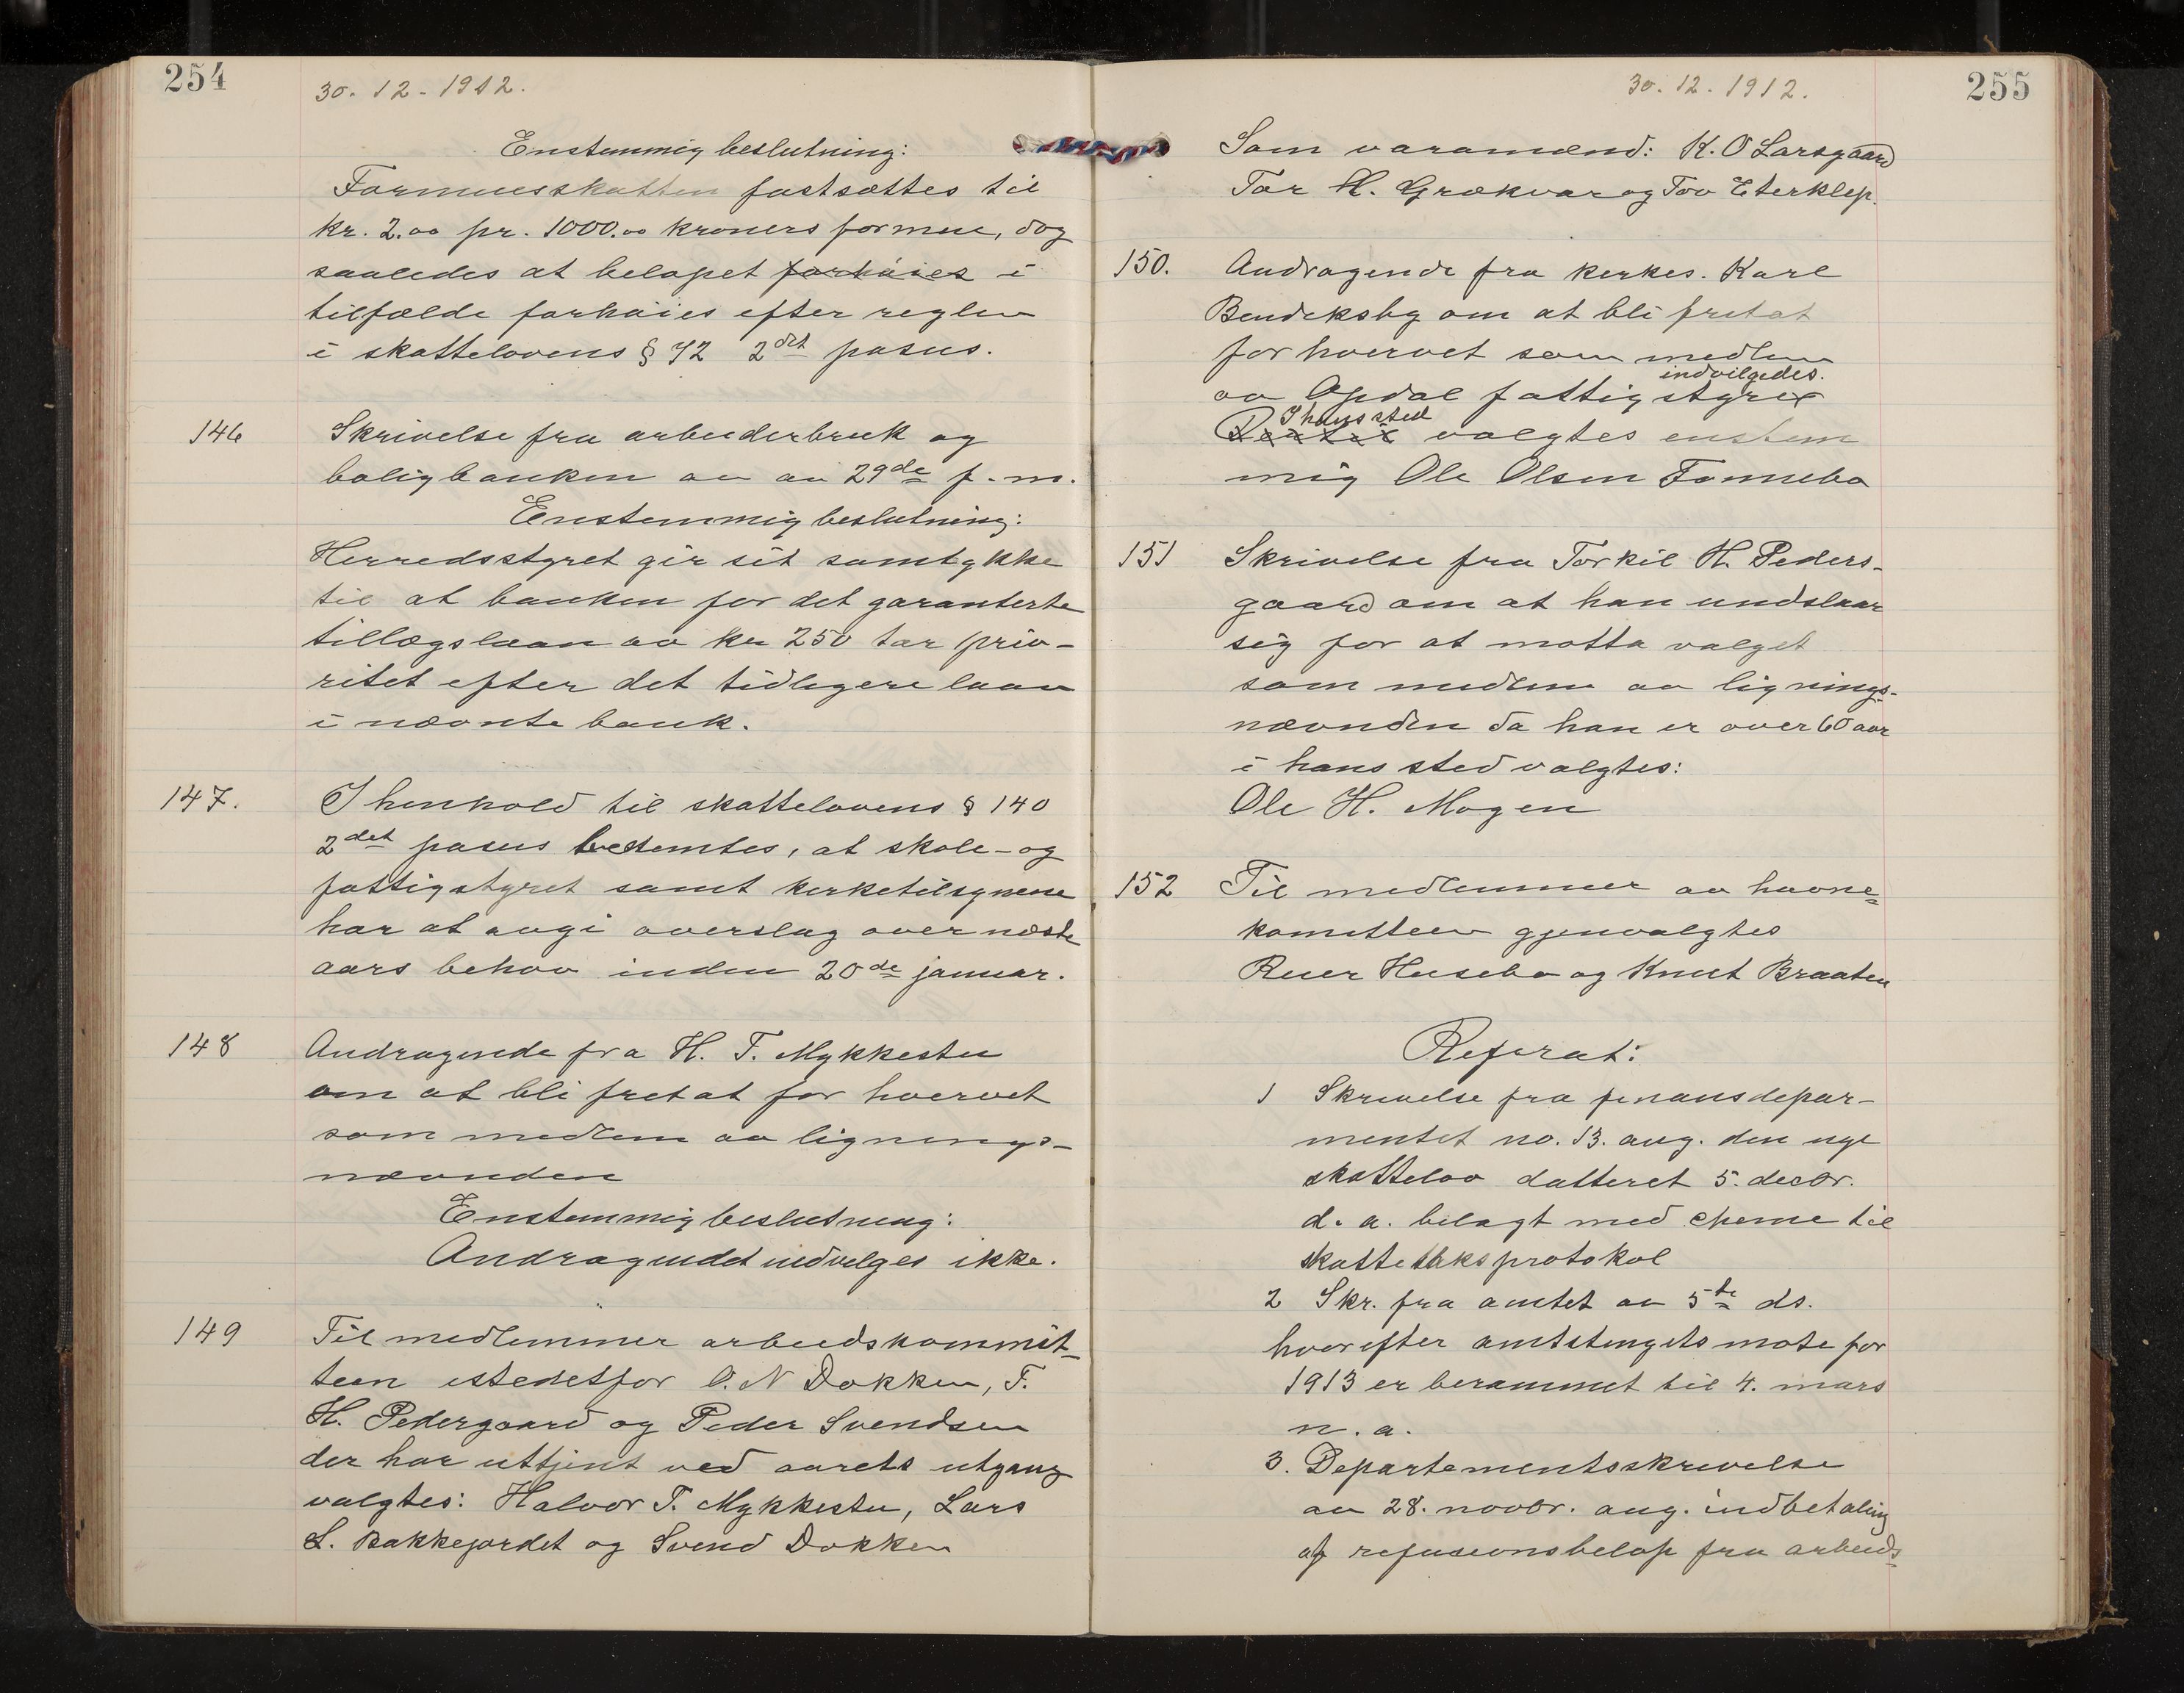 254
30. 12 - 1912.
Enstemmig beslutning:
Formuesskatten fastsættes til
kr. 2.00 pr. 1000.00 kroners formue, dog
saaledes at beløpet forhøies i
tilfælde forhøies efter reglen
i skattelovens § 72 2det pasus.
146 Skrivelse fra arbeiderbruk og
boligbanken av 29de f. m.
Enstemmig beslutning:
Herredsstyret gir sit samtykke
til at banken for det garanterte
tillægslaan av kr 250 tar prio-
ritet efter det tidligere laan
i nævnte bank.
147. I henhold til skattelovens § 140
2det pasus bestemtes, at skole- og
fattigstyret samt kirketilsynene
har at avgi overslag over næste
aars behov inden 20de januar.
148 Andragende fra H. T. Mykkestu
om at bli fritat for hvervet
som medlem av lignings-
nævnden
Enstemmig beslutning:
Andragendet indvilges ikke.
149 Til medlemmer arbeidskommit-
teen istedetfor O. N Dokken, T.
H. Pedergaard og Peder Svendsen
der har uttjent ved aarets utgang
valgtes: Halvor T. Mykkestu, Lars
L. Bakkejordet og Svend Dokken
255
30. 12. 1912.
Som varamænd: K. O Larsgaard
Tor H. Grøkvar og Tov Eterklep.
150. Andragende fra kirkes. Karl
Bendeksby om at bli fritat
for hvervet som medlem
indvilgedes.
av Opdal fattigstyre
I hans sted
valgtes enstem
mig Ole Olsen Tonnebø
151 Skrivelse fra Torkil H. Peders-
gaard om at han undslaar
sig for at motta valget
som medlem av lignings-
nævnden da han er over 60 aar
i hans sted valgtes:
Ole H. Mogen
152 Til medlemmer av havne-
komitteen gjenvalgtes
Reier Husebø og Knut Braaten
Referat:
1 Skrivelse fra finansdepar-
mentet no. 13. ang. den nye
skattelov datteret 5. decbr.
d. a. bilagt med chema til
skattetaksprotokol
2 Skr. fra amtet av 5te ds.
hvorefter amtstingets møte for
1913 er berammet til 4. mars
n. a.
3. Departementsskrivelse
av 28. novbr. ang. indbetaling
af refusionsbeløp fra arbeids-